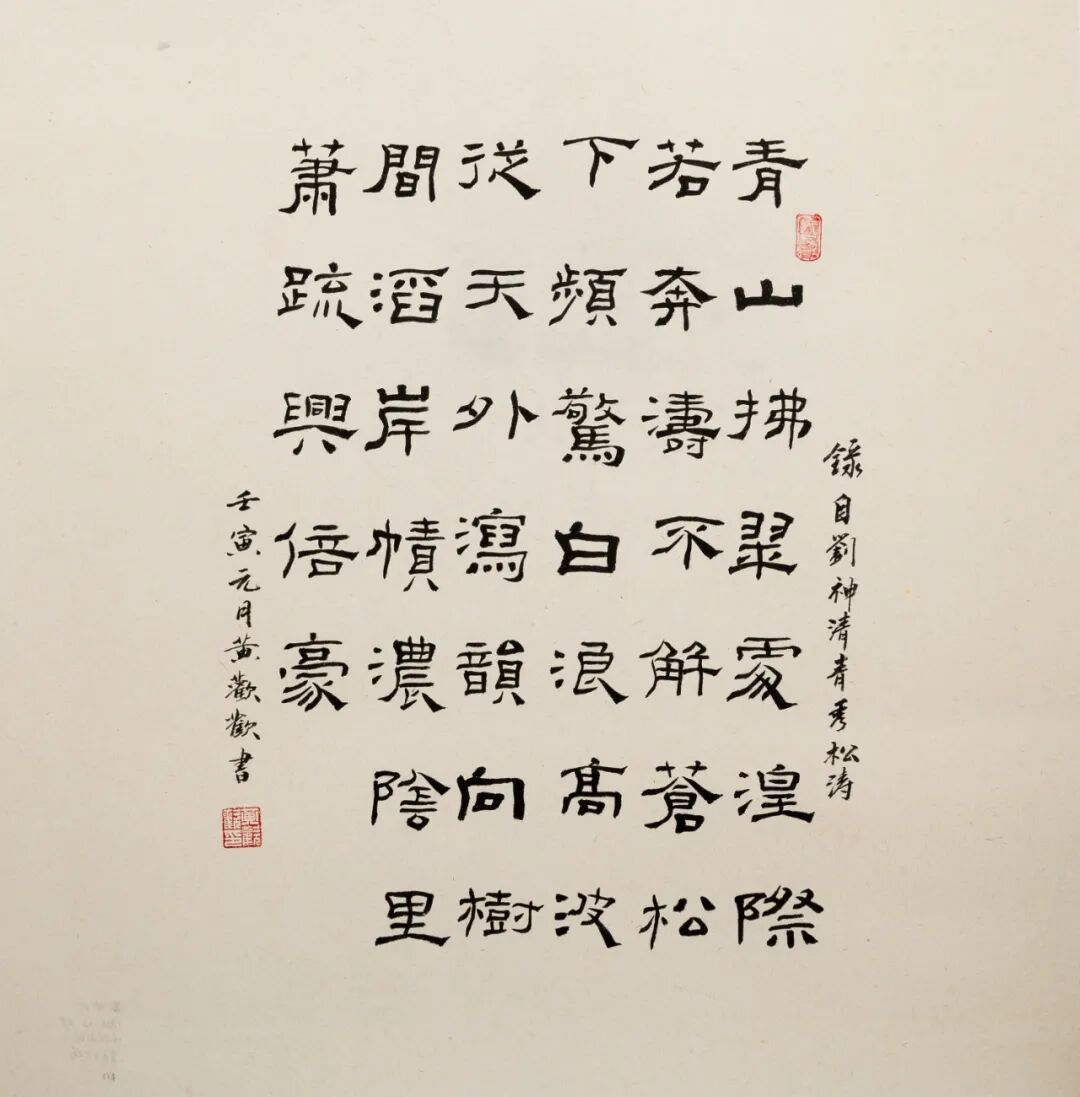 錄自劉神清青秀松涛
青山拂翠處湟際
若奔濤不解蒼松
下頻驚白浪高波
從天外瀉韻向樹
間滔岸幘濃陰里
蕭疏興倍豪
壬寅元月黄歡歡書